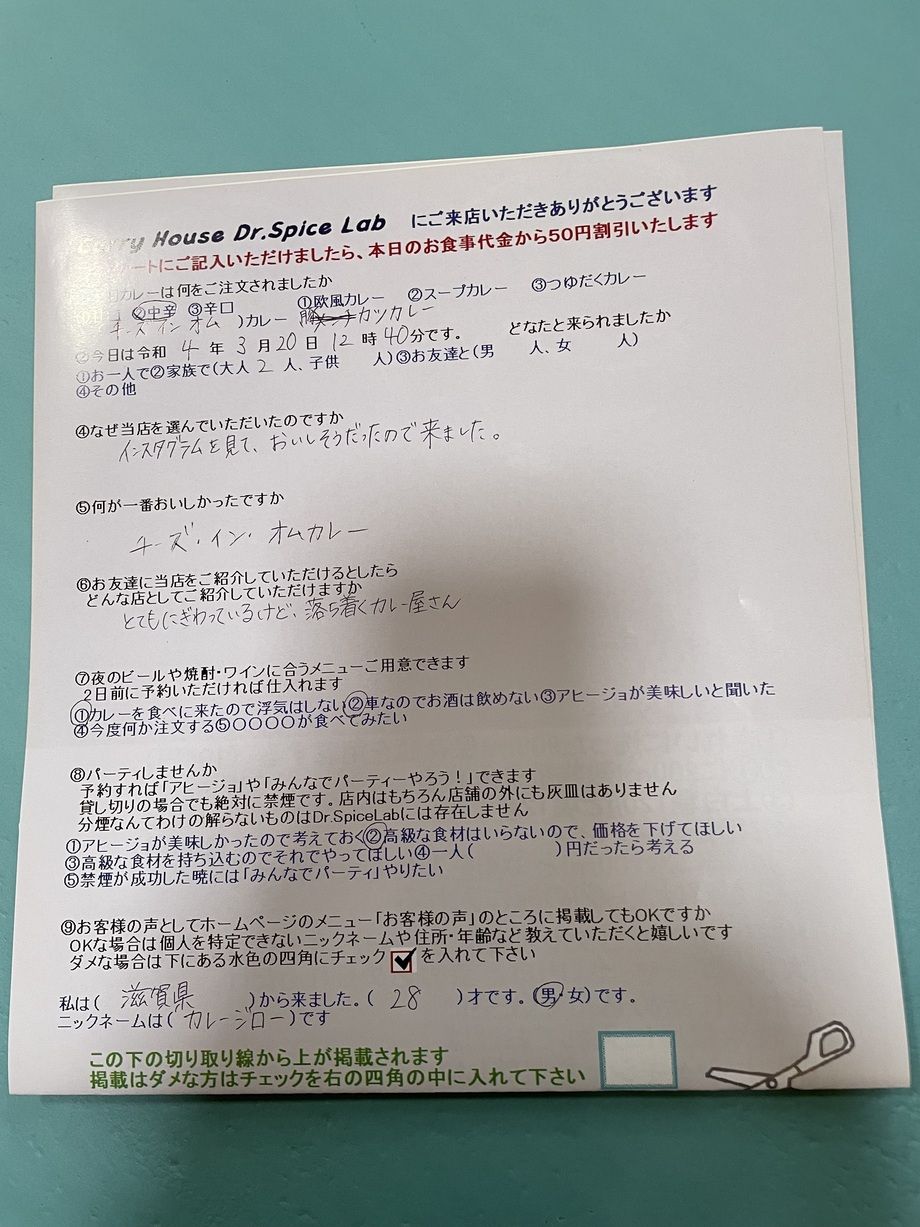 House Dr.Spice Lab にご来店いただきありがとうございます
ートにご記入いただけましたら、本日のお食事代金から50円割引いたします
カレーは何をご注文されましたか
②中辛 ③辛口 ①欧風カレー ②スープカレー ③つゆだくカレー
チーズインオム )カレー カツカレー
今日は令和 4 年 3 月 20 日 12 時 40 分です。 どなたと来られましたか
①お一人で②家族で(大人 2 人、子供 人)③お友達と(男 人、女 人)
④その他
④なぜ当店を選んでいただいたのですか
インスタグラムを見て、おいしそうだったので来ました。
⑤何が一番おいしかったですか
チーズ・イン・オムカレー
⑥お友達に当店をご紹介していただけるとしたら
どんな店としてご紹介していただけますか
とてもにぎわっているけど、落ち着くカレー屋さん
⑦夜のビールや焼酎・ワインに合うメニューご用意できます
2日前に予約いただければ仕入れます
①カレーを食べに来たので浮気はしない②車なのでお酒は飲めない③アヒージョが美味しいと聞いた
④今度何か注文する⑤〇〇〇〇が食べてみたい
⑧パーティしませんか
予約すれば「アヒージョ」や「みんなでパーティーやろう!」できます
貸し切りの場合でも絶対に禁煙です。店内はもちろん店舗の外にも灰皿はありません
分煙なんてわけの解らないものはDr.SpiceLabには存在しません
①アヒージョが美味しかったので考えておく②高級な食材はいらないので、価格を下げてほしい
③高級な食材を持ち込むのでそれでやってほしい④一人( )円だったら考える
⑤禁煙が成功した暁には「みんなでパーティ」やりたい
⑨お客様の声としてホームページのメニュー「お客様の声」のところに掲載してもOKですか
OKな場合は個人を特定できないニックネームや住所・年齢など教えていただくと嬉しいです
ダメな場合は下にある水色の四角にチェック を入れて下さい
私は( 滋賀県 )から来ました。( 28 )才です。(男・女)です。
ニックネームは( カレージロー )です
この下の切り取り線から上が掲載されます
掲載はダメな方はチェックを右の四角の中に入れて下さい